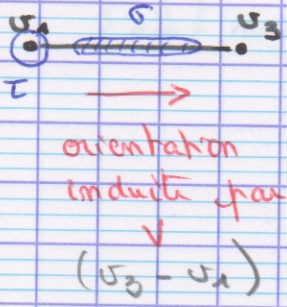 σ
v₁ v₃
τ
orientation
induite par
V
(v₃ - v₁)